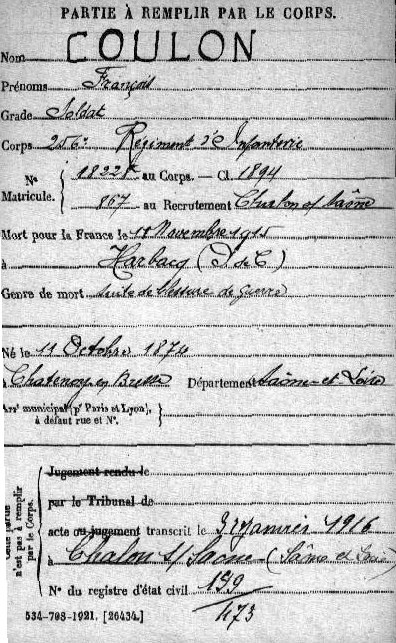 PARTIE À REMPLIR PAR LE CORPS.
Nom COULON
Prénoms François
Grade Soldat
Corps 256e Régiment d'Infanterie
No Matricule. 18228 au Corps. — Cl. 1894
867 au Recrutement Chalon s/ Saône
Mort pour la France le 11 Novembre 1915
à Harbacq (P de C)
Genre de mort suite de blessure de guerre
Né le 11 Octobre 1874
à Chatenoy en Bresse Département Saône-et-Loire
Arrt municipal (pr Paris et Lyon),
à défaut rue et No.
Cette partie n'est pas à remplir par le Corps.
Jugement rendu le
par le Tribunal de
acte ou jugement transcrit le Janvier 1916
à Chalon s/ Saône (Saône et Loire)
No du registre d'état civil
473
534-708-1921. [26434.]